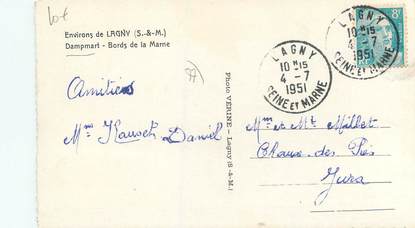 Environs de LAGNY (S.-&-M.)
Dampmart - Bords de la Marne
Amitiés
Mme Kausch Daniel
Photo VÉRINE - Lagny (S-&-M.)
LAGNY
10 H 15
4 - 7
1951
SEINE ET MARNE
LAGNY
10 H 15
4 - 7
1951
SEINE ET MARNE
8F
Mme et Mr Millet
Chaux-des-Prés
Jura